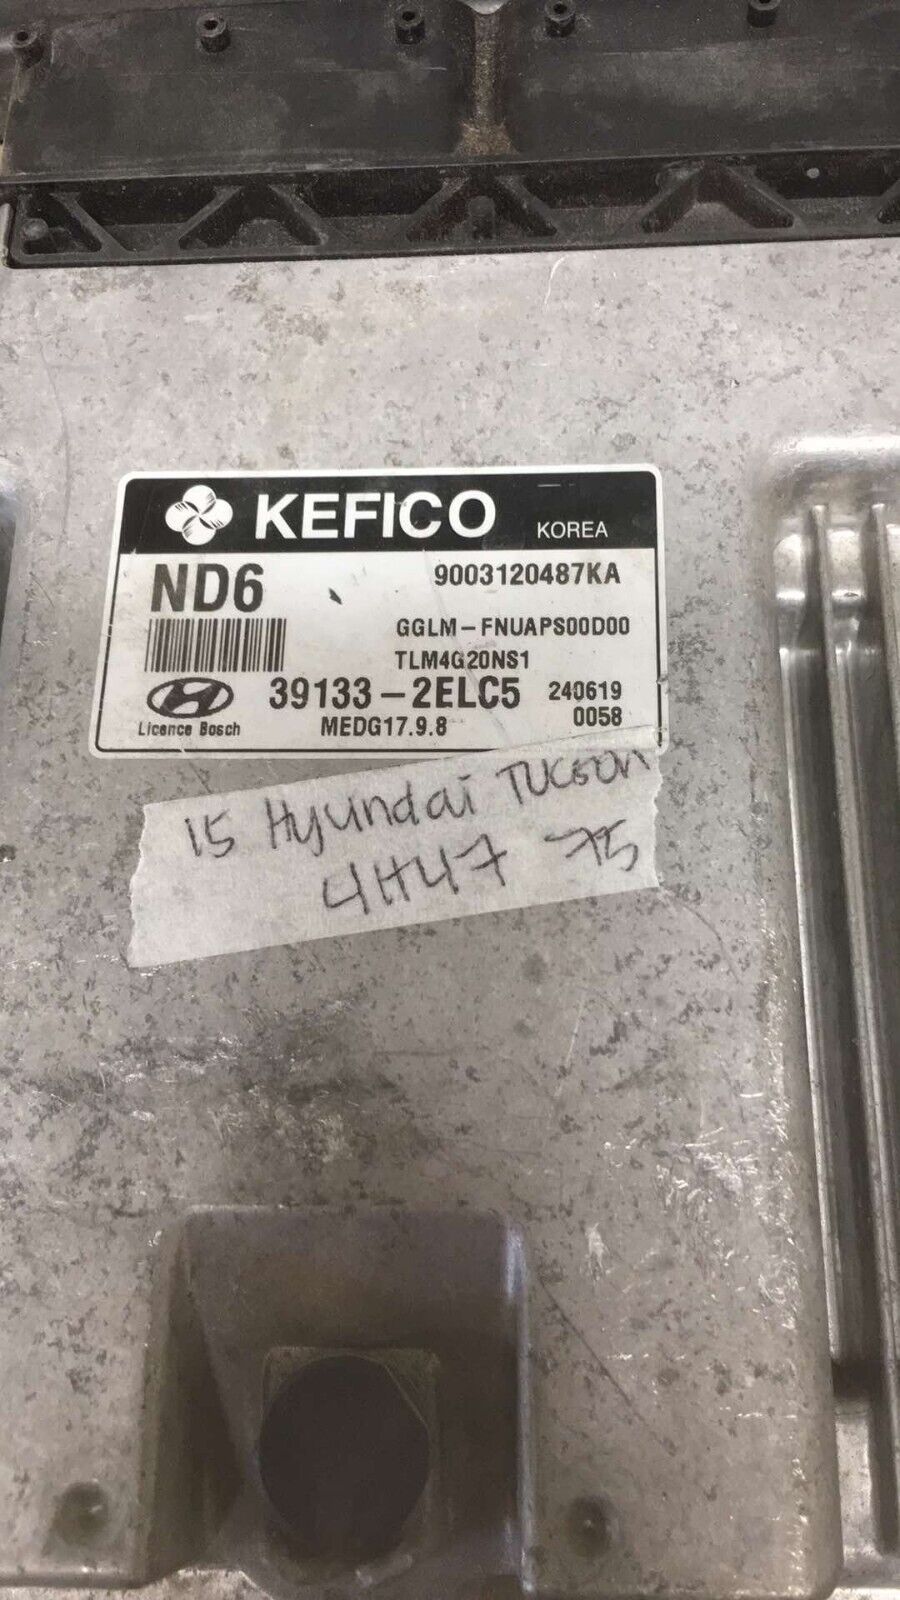 KEFICO KOREA
ND6 9003120487KA
GGLM-FNUAPS00D00
TLM4G20NS1
39133-2ELC5 240619
Licence Bosch MEDG17.9.8 0058
15 Hyundai TUCSON
4H47 75